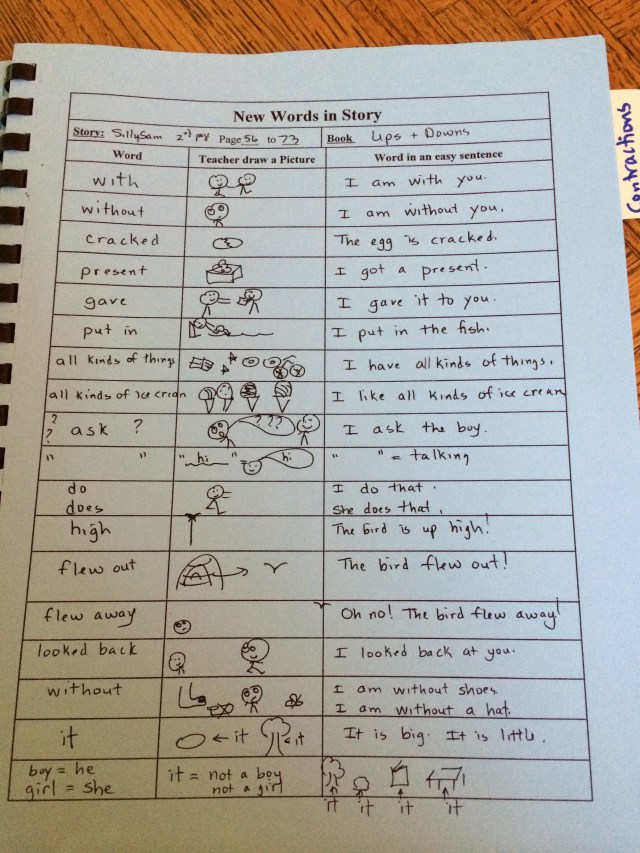 New Words in Story
Story: SillySam Page 56 to 73 Book Ups + Downs
Word Teacher draw a Picture Word in an easy sentence
with I am with you.
without I am without you.
cracked The egg is cracked.
present I got a present.
gave I gave it to you.
put in I put in the fish.
all kinds of things I have all kinds of things.
all kinds of ice cream I like all kinds of ice cream
? ? ask ? ? ? ? I ask the boy.
" " " hi " hi " " = talking
do I do that.
does She does that.
high The bird is up high!
flew out The bird flew out!
flew away Oh no! The bird flew away!
looked back I looked back at you.
without I am without shoes.
I am without a hat.
it ← it ← it It is big. It is little.
boy = he it = not a boy
girl = she not a girl
it it it it
Contractions